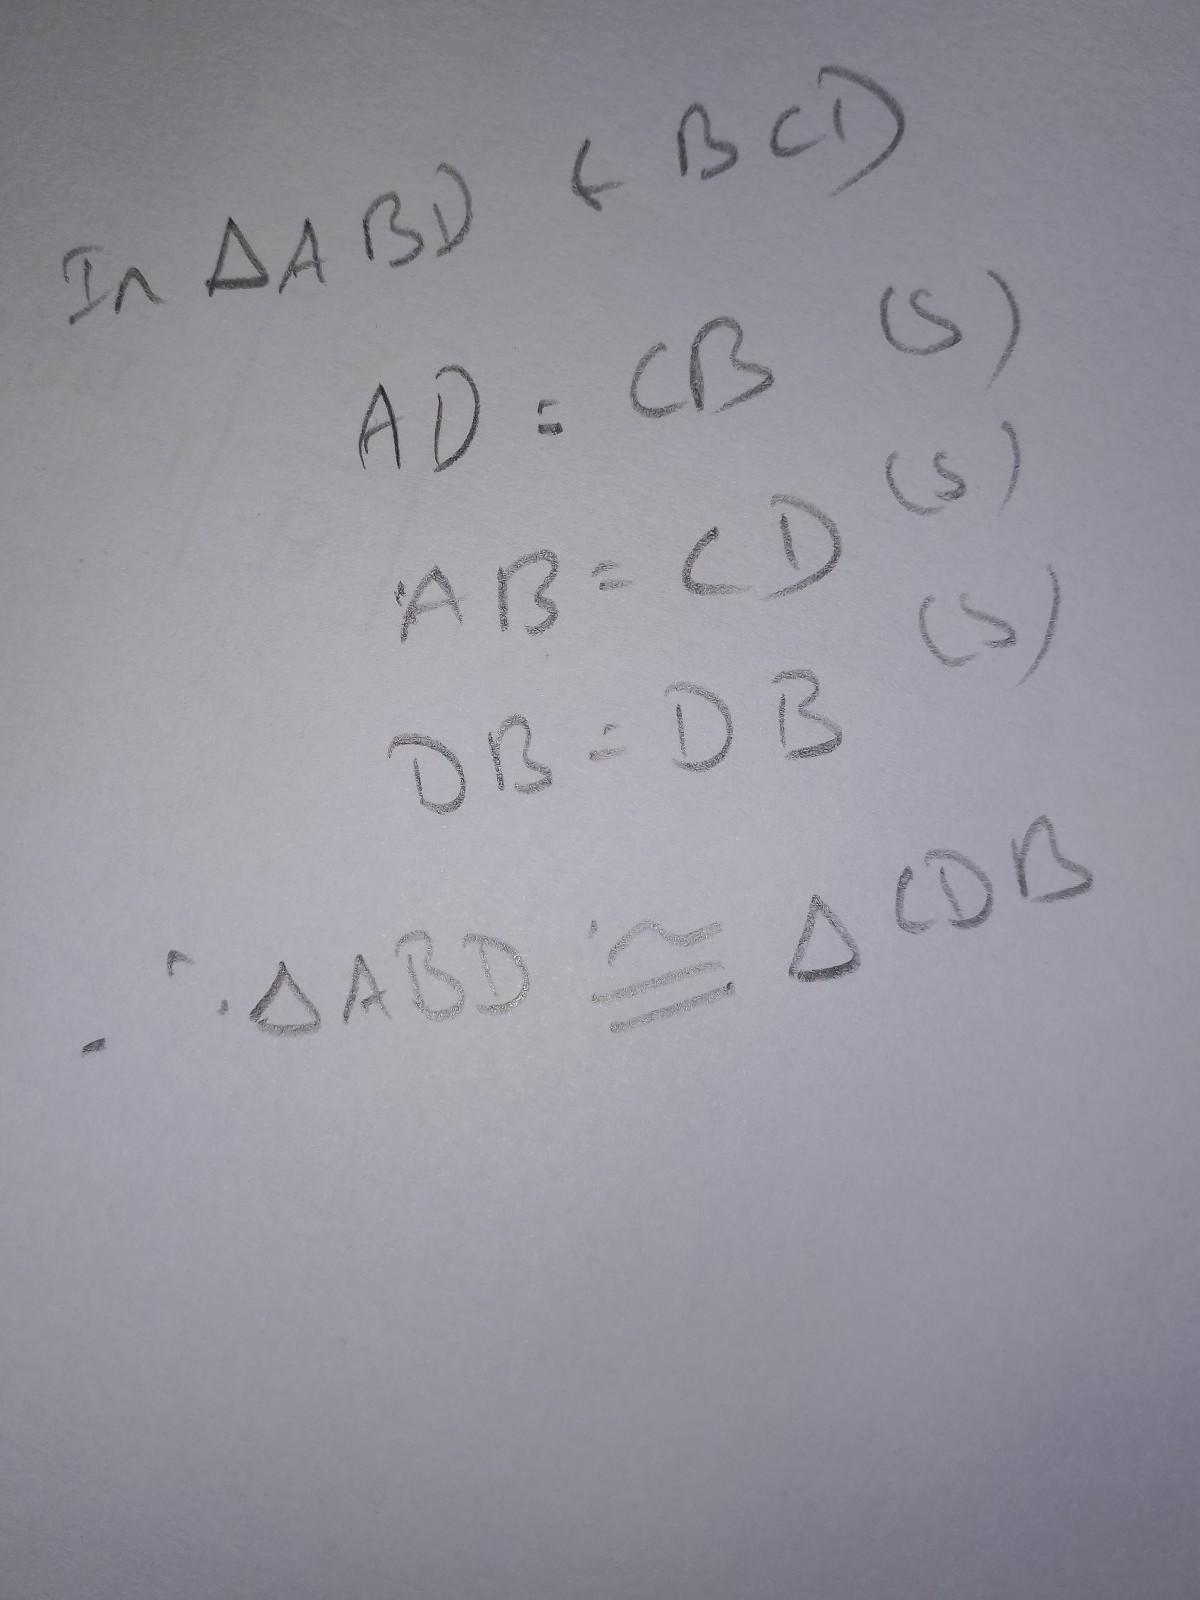 In ΔABD & BCD
AD = CB (S)
AB = CD (S)
DB = DB (S)
∴ ΔABD ≅ ΔCDB